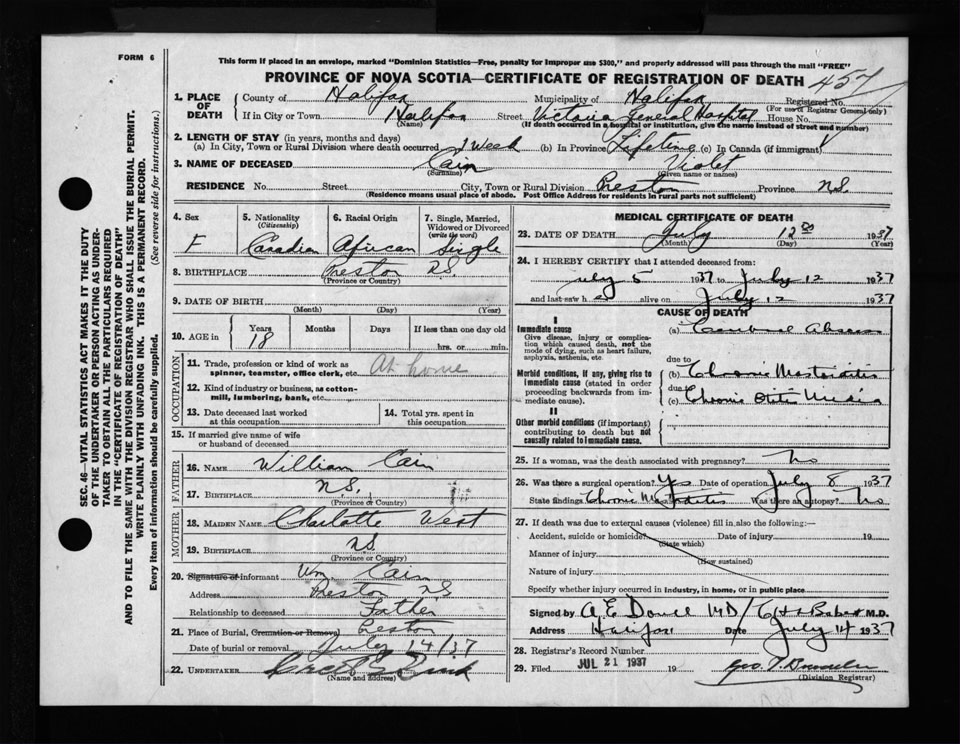 FORM 6
This form if placed in an envelope, marked "Dominion Statistics—Free, penalty for improper use $300," and properly addressed will pass through the mail "FREE"
PROVINCE OF NOVA SCOTIA—CERTIFICATE OF REGISTRATION OF DEATH 457
1. PLACE OF DEATH
County of Halifax Municipality of Halifax Registered No.
(For use of Registrar General only)
If in City or Town Halifax Street Victoria General Hospital House No.
(Name) (If death occurred in a hospital or institution, give the name instead of street and number)
2. LENGTH OF STAY (in years, months and days)
(a) In City, Town or Rural Division where death occurred 1 Week (b) In Province Lifetime (c) In Canada (if immigrant)
3. NAME OF DECEASED Cain Violet
(Surname) (Given name or names)
RESIDENCE No. Street City, Town or Rural Division Preston Province N.S.
(Residence means usual place of abode. Post Office Address for residents in rural parts not sufficient)
SEC. 46—VITAL STATISTICS ACT MAKES IT THE DUTY
OF THE UNDERTAKER OR PERSON ACTING AS UNDER-
TAKER TO OBTAIN ALL THE PARTICULARS REQUIRED
IN THE "CERTIFICATE OF REGISTRATION OF DEATH"
AND TO FILE THE SAME WITH THE DIVISION REGISTRAR WHO SHALL ISSUE THE BURIAL PERMIT.
WRITE PLAINLY WITH UNFADING INK. THIS IS A PERMANENT RECORD.
Every item of information should be carefully supplied. (See reverse side for instructions.)
4. Sex F
5. Nationality (Citizenship) Canadian
6. Racial Origin African
7. Single, Married, Widowed or Divorced (write the word) Single
8. BIRTHPLACE Preston N.S.
(Province or Country)
9. DATE OF BIRTH
(Month) (Day) (Year)
10. AGE in Years 18 Months Days If less than one day old
hrs. or min.
OCCUPATION
11. Trade, profession or kind of work as spinner, teamster, office clerk, etc. At home
12. Kind of industry or business, as cotton-mill, lumbering, bank, etc.
13. Date deceased last worked at this occupation
14. Total yrs. spent in this occupation.
15. If married give name of wife or husband of deceased
FATHER
16. NAME William Cain
17. BIRTHPLACE N.S.
(Province or Country)
MOTHER
18. MAIDEN NAME Charlotte West
19. BIRTHPLACE N.S.
(Province or Country)
20. Signature of Informant Wm. Cain
Address Preston N.S.
Relationship to deceased Father
21. Place of Burial, Cremation or Removal Preston
Date of burial or removal July 14/37
22. UNDERTAKER
(Name and address)
MEDICAL CERTIFICATE OF DEATH
23. DATE OF DEATH July 12 1937
(Month) (Day) (Year)
24. I HEREBY CERTIFY that I attended deceased from:
July 5 1937 to July 12 1937
and last saw h alive on July 12 1937
CAUSE OF DEATH
I
Immediate cause
Give disease, injury or complication which caused death, not the mode of dying, such as heart failure, asphyxia, asthenia, etc.
(a) Cerebral Abscess
due to
Morbid conditions, if any, giving rise to immediate cause (stated in order proceeding backwards from immediate cause).
(b) Chronic Mastoiditis
due to
(c) Chronic Otitis Media
II
Other morbid conditions (if important) contributing to death but not causally related to immediate cause.
25. If a woman, was the death associated with pregnancy? No
26. Was there a surgical operation? Yes Date of operation July 8 1937
State findings Chronic Mastoiditis Was there an autopsy? No
27. If death was due to external causes (violence) fill in also the following:—
Accident, suicide or homicide? Date of injury 19
(State which)
Manner of injury
(How sustained)
Nature of injury
Specify whether injury occurred in industry, in home, or in public place
Signed by M.D.
Address Halifax Date July 14 1937
28. Registrar's Record Number
29. Filed JUL 21 1937 29.
(Division Registrar)